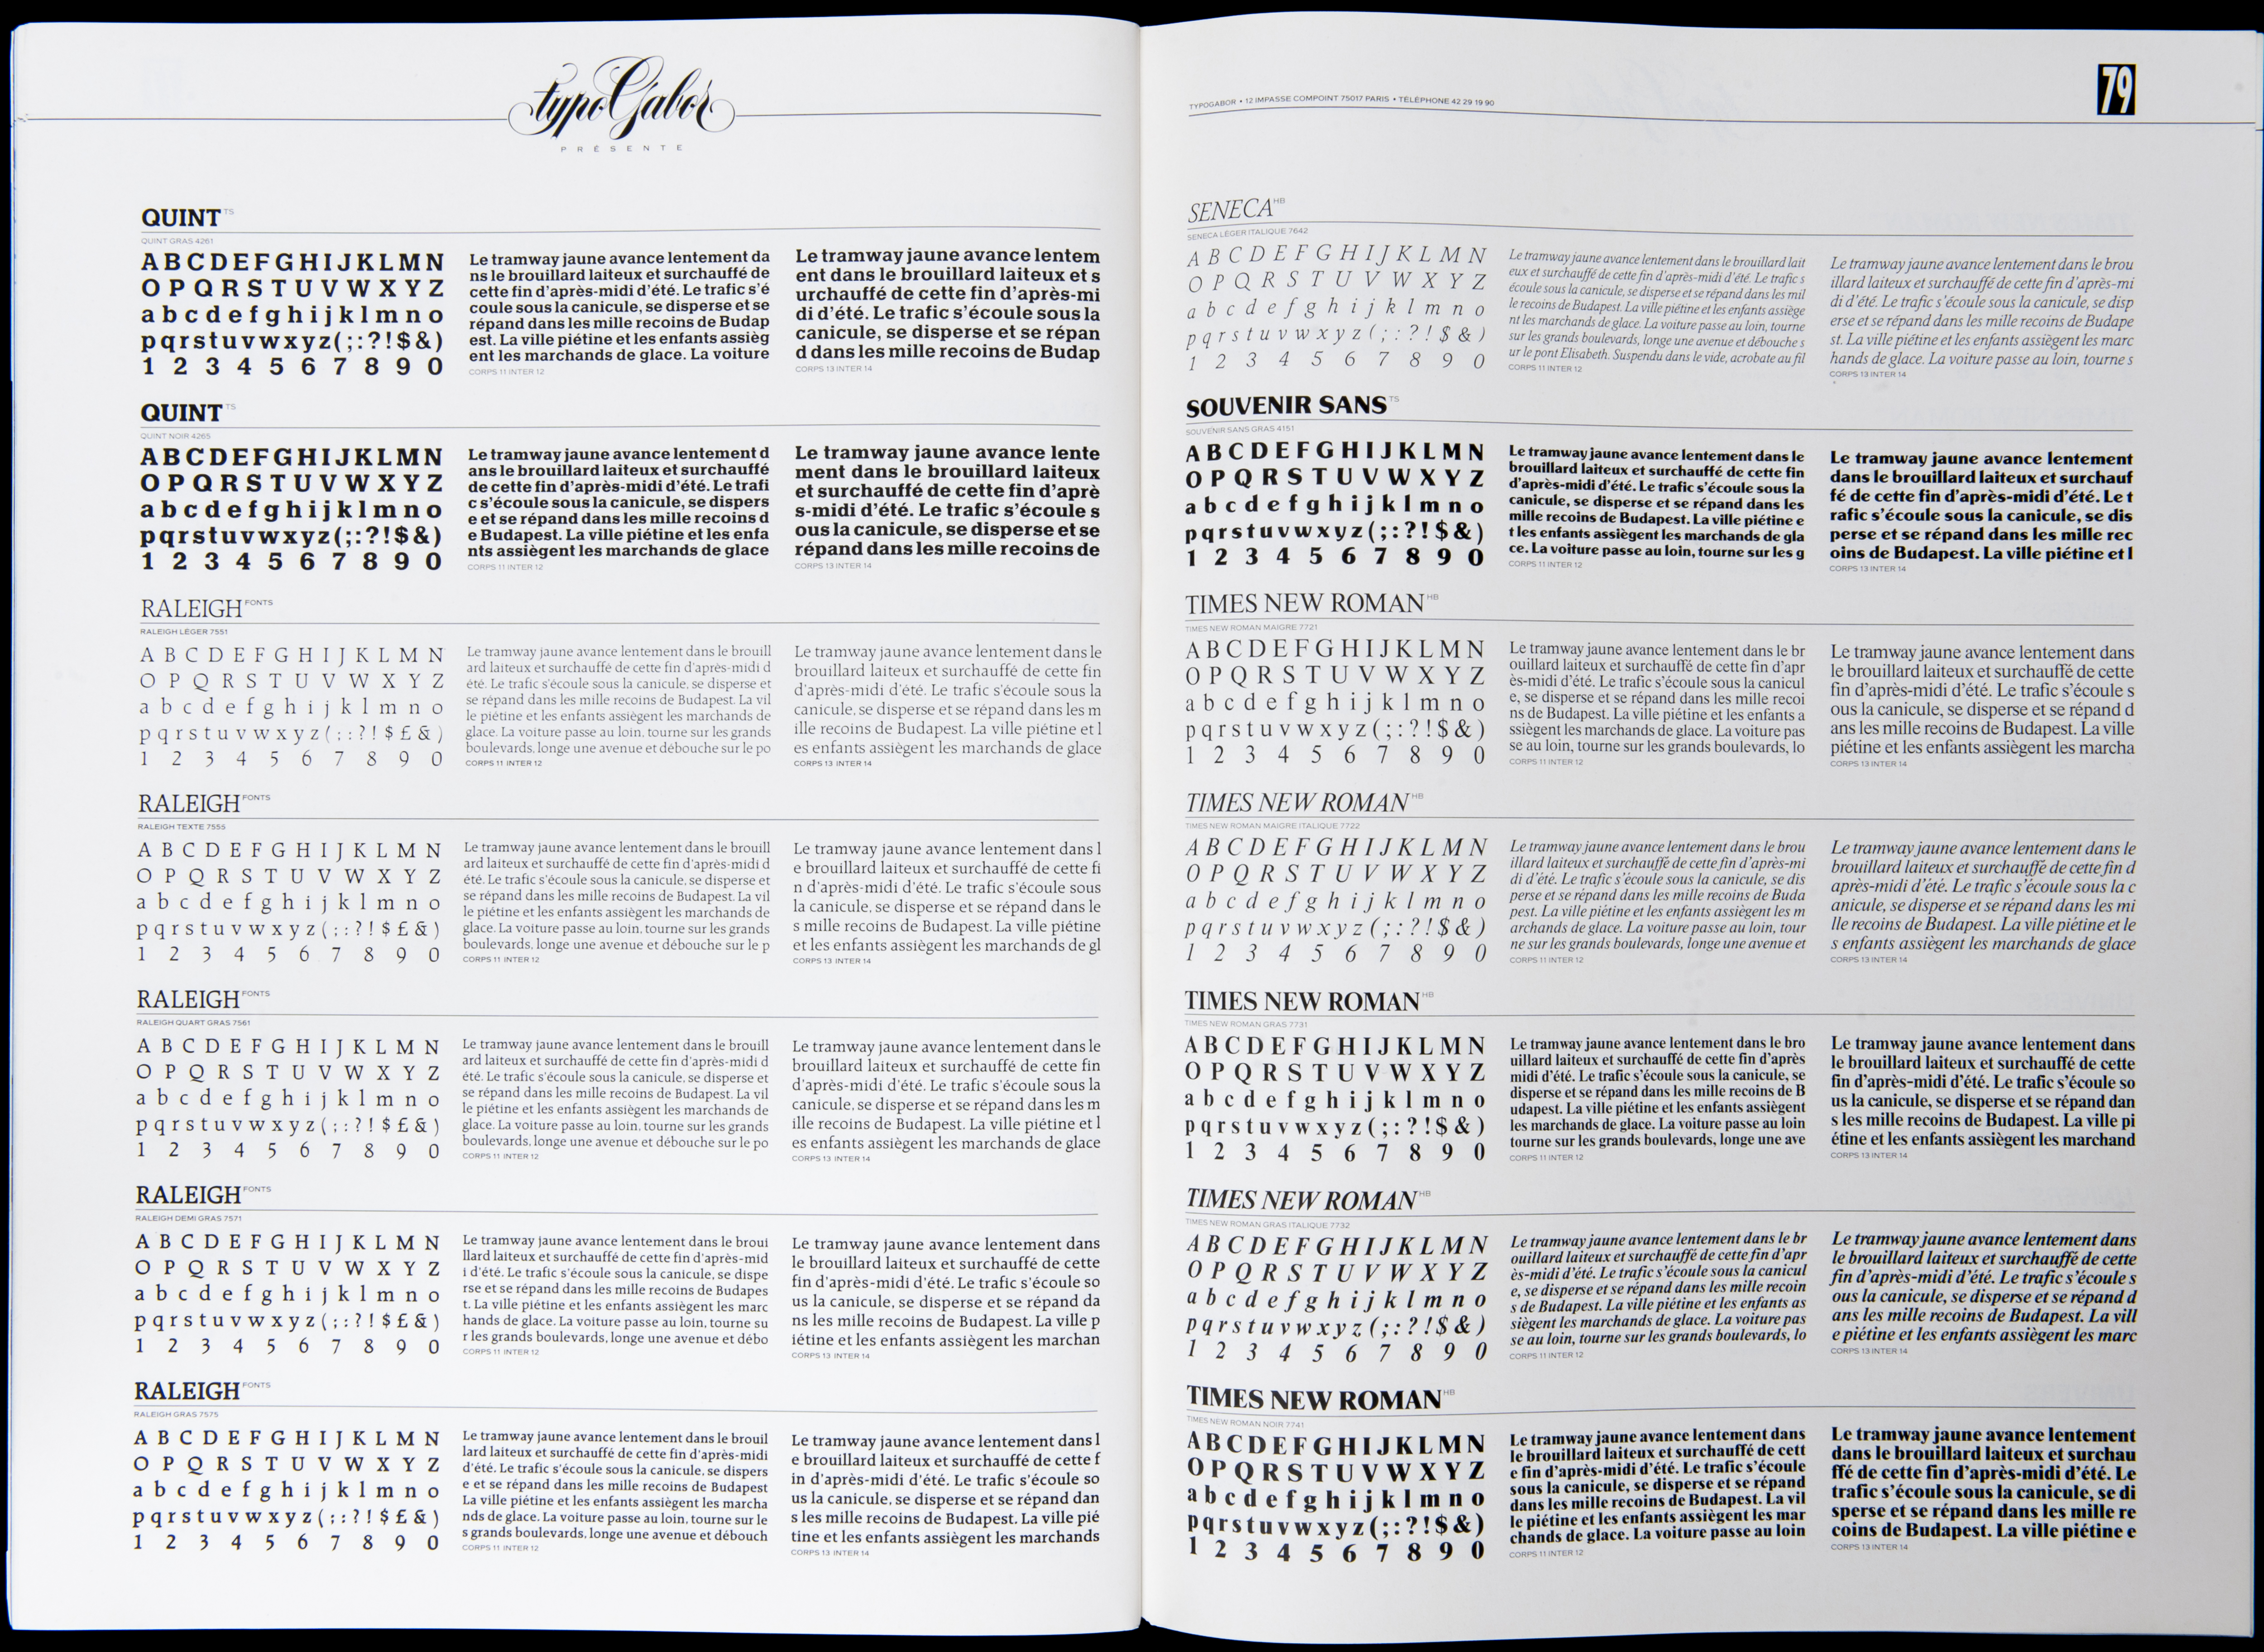 typoGabor
PRÉSENTE
QUINT TS
QUINT GRAS 4261
A B C D E F G H I J K L M N
O P Q R S T U V W X Y Z
a b c d e f g h i j k l m n o
p q r s t u v w x y z ( ; : ? ! $ & )
1 2 3 4 5 6 7 8 9 0
Le tramway jaune avance lentement da
ns le brouillard laiteux et surchauffé de
cette fin d'après-midi d'été. Le trafic s'é
coule sous la canicule, se disperse et se
répand dans les mille recoins de Budap
est. La ville piétine et les enfants assièg
ent les marchands de glace. La voiture
CORPS 11 INTER 12
Le tramway jaune avance lentem
ent dans le brouillard laiteux et s
urchauffé de cette fin d'après-mi
di d'été. Le trafic s'écoule sous la
canicule, se disperse et se répan
d dans les mille recoins de Budap
CORPS 13 INTER 14
QUINT TS
QUINT NOIR 4265
A B C D E F G H I J K L M N
O P Q R S T U V W X Y Z
a b c d e f g h i j k l m n o
p q r s t u v w x y z ( ; : ? ! $ & )
1 2 3 4 5 6 7 8 9 0
Le tramway jaune avance lentement d
ans le brouillard laiteux et surchauffé
de cette fin d'après-midi d'été. Le trafi
c s'écoule sous la canicule, se dispers
e et se répand dans les mille recoins d
e Budapest. La ville piétine et les enfa
nts assiègent les marchands de glace
CORPS 11 INTER 12
Le tramway jaune avance lente
ment dans le brouillard laiteux
et surchauffé de cette fin d'aprè
s-midi d'été. Le trafic s'écoule s
ous la canicule, se disperse et se
répand dans les mille recoins de
CORPS 13 INTER 14
RALEIGH FONTS
RALEIGH LÉGER 7551
A B C D E F G H I J K L M N
O P Q R S T U V W X Y Z
a b c d e f g h i j k l m n o
p q r s t u v w x y z ( ; : ? ! $ £ & )
1 2 3 4 5 6 7 8 9 0
Le tramway jaune avance lentement dans le brouill
ard laiteux et surchauffé de cette fin d'après-midi d
été. Le trafic s'écoule sous la canicule, se disperse et
se répand dans les mille recoins de Budapest. La vil
le piétine et les enfants assiègent les marchands de
glace. La voiture passe au loin, tourne sur les grands
boulevards, longe une avenue et débouche sur le po
CORPS 11 INTER 12
Le tramway jaune avance lentement dans le
brouillard laiteux et surchauffé de cette fin
d'après-midi d'été. Le trafic s'écoule sous la
canicule, se disperse et se répand dans les m
ille recoins de Budapest. La ville piétine et l
es enfants assiègent les marchands de glace
CORPS 13 INTER 14
RALEIGH FONTS
RALEIGH TEXTE 7555
A B C D E F G H I J K L M N
O P Q R S T U V W X Y Z
a b c d e f g h i j k l m n o
p q r s t u v w x y z ( ; : ? ! $ £ & )
1 2 3 4 5 6 7 8 9 0
Le tramway jaune avance lentement dans le brouill
ard laiteux et surchauffé de cette fin d'après-midi d
été. Le trafic s'écoule sous la canicule, se disperse et
se répand dans les mille recoins de Budapest. La vil
le piétine et les enfants assiègent les marchands de
glace. La voiture passe au loin, tourne sur les grands
boulevards, longe une avenue et débouche sur le p
CORPS 11 INTER 12
Le tramway jaune avance lentement dans l
e brouillard laiteux et surchauffé de cette fi
n d'après-midi d'été. Le trafic s'écoule sous
la canicule, se disperse et se répand dans le
s mille recoins de Budapest. La ville piétine
et les enfants assiègent les marchands de gl
CORPS 13 INTER 14
RALEIGH FONTS
RALEIGH QUART GRAS 7561
A B C D E F G H I J K L M N
O P Q R S T U V W X Y Z
a b c d e f g h i j k l m n o
p q r s t u v w x y z ( ; : ? ! $ £ & )
1 2 3 4 5 6 7 8 9 0
Le tramway jaune avance lentement dans le brouill
ard laiteux et surchauffé de cette fin d'après-midi d
été. Le trafic s'écoule sous la canicule, se disperse et
se répand dans les mille recoins de Budapest. La vil
le piétine et les enfants assiègent les marchands de
glace. La voiture passe au loin, tourne sur les grands
boulevards, longe une avenue et débouche sur le po
CORPS 11 INTER 12
Le tramway jaune avance lentement dans le
brouillard laiteux et surchauffé de cette fin
d'après-midi d'été. Le trafic s'écoule sous la
canicule, se disperse et se répand dans les m
ille recoins de Budapest. La ville piétine et l
es enfants assiègent les marchands de glace
CORPS 13 INTER 14
RALEIGH FONTS
RALEIGH DEMI GRAS 7571
A B C D E F G H I J K L M N
O P Q R S T U V W X Y Z
a b c d e f g h i j k l m n o
p q r s t u v w x y z ( ; : ? ! $ £ & )
1 2 3 4 5 6 7 8 9 0
Le tramway jaune avance lentement dans le broui
llard laiteux et surchauffé de cette fin d'après-mid
i d'été. Le trafic s'écoule sous la canicule, se dispe
rse et se répand dans les mille recoins de Budapes
t. La ville piétine et les enfants assiègent les marc
hands de glace. La voiture passe au loin, tourne su
r les grands boulevards, longe une avenue et débo
CORPS 11 INTER 12
Le tramway jaune avance lentement dans
le brouillard laiteux et surchauffé de cette
fin d'après-midi d'été. Le trafic s'écoule so
us la canicule, se disperse et se répand da
ns les mille recoins de Budapest. La ville p
iétine et les enfants assiègent les marchan
CORPS 13 INTER 14
RALEIGH FONTS
RALEIGH GRAS 7575
A B C D E F G H I J K L M N
O P Q R S T U V W X Y Z
a b c d e f g h i j k l m n o
p q r s t u v w x y z ( ; : ? ! $ £ & )
1 2 3 4 5 6 7 8 9 0
Le tramway jaune avance lentement dans le brouil
lard laiteux et surchauffé de cette fin d'après-midi
d'été. Le trafic s'écoule sous la canicule, se dispers
e et se répand dans les mille recoins de Budapest
La ville piétine et les enfants assiègent les marcha
nds de glace. La voiture passe au loin, tourne sur le
s grands boulevards, longe une avenue et débouch
CORPS 11 INTER 12
Le tramway jaune avance lentement dans l
e brouillard laiteux et surchauffé de cette f
in d'après-midi d'été. Le trafic s'écoule so
us la canicule, se disperse et se répand dan
s les mille recoins de Budapest. La ville pié
tine et les enfants assiègent les marchands
CORPS 13 INTER 14
TYPOGABOR • 12 IMPASSE COMPOINT 75017 PARIS • TÉLÉPHONE 42 29 19 90
79
SENECA HB
SENECA LÉGER ITALIQUE 7642
A B C D E F G H I J K L M N
O P Q R S T U V W X Y Z
a b c d e f g h i j k l m n o
p q r s t u v w x y z ( ; : ? ! $ & )
1 2 3 4 5 6 7 8 9 0
Le tramway jaune avance lentement dans le brouillard lait
eux et surchauffé de cette fin d'après-midi d'été. Le trafic s
écoule sous la canicule, se disperse et se répand dans les mil
le recoins de Budapest. La ville piétine et les enfants assiège
nt les marchands de glace. La voiture passe au loin, tourne
sur les grands boulevards, longe une avenue et débouche s
ur le pont Elisabeth. Suspendu dans le vide, acrobate au fil
CORPS 11 INTER 12
Le tramway jaune avance lentement dans le brou
illard laiteux et surchauffé de cette fin d'après-mi
di d'été. Le trafic s'écoule sous la canicule, se disp
erse et se répand dans les mille recoins de Budape
st. La ville piétine et les enfants assiègent les marc
hands de glace. La voiture passe au loin, tourne s
CORPS 13 INTER 14
SOUVENIR SANS TS
SOUVENIR SANS GRAS 4151
A B C D E F G H I J K L M N
O P Q R S T U V W X Y Z
a b c d e f g h i j k l m n o
p q r s t u v w x y z ( ; : ? ! $ & )
1 2 3 4 5 6 7 8 9 0
Le tramway jaune avance lentement dans le
brouillard laiteux et surchauffé de cette fin
d'après-midi d'été. Le trafic s'écoule sous la
canicule, se disperse et se répand dans les
mille recoins de Budapest. La ville piétine e
t les enfants assiègent les marchands de gla
ce. La voiture passe au loin, tourne sur les g
CORPS 11 INTER 12
Le tramway jaune avance lentement
dans le brouillard laiteux et surchauf
fé de cette fin d'après-midi d'été. Le t
rafic s'écoule sous la canicule, se dis
perse et se répand dans les mille rec
oins de Budapest. La ville piétine et l
CORPS 13 INTER 14
TIMES NEW ROMAN HB
TIMES NEW ROMAN MAIGRE 7721
A B C D E F G H I J K L M N
O P Q R S T U V W X Y Z
a b c d e f g h i j k l m n o
p q r s t u v w x y z ( ; : ? ! $ & )
1 2 3 4 5 6 7 8 9 0
Le tramway jaune avance lentement dans le br
ouillard laiteux et surchauffé de cette fin d'apr
ès-midi d'été. Le trafic s'écoule sous la canicul
e, se disperse et se répand dans les mille recoi
ns de Budapest. La ville piétine et les enfants a
ssiègent les marchands de glace. La voiture pas
se au loin, tourne sur les grands boulevards, lo
CORPS 11 INTER 12
Le tramway jaune avance lentement dans
le brouillard laiteux et surchauffé de cette
fin d'après-midi d'été. Le trafic s'écoule s
ous la canicule, se disperse et se répand d
ans les mille recoins de Budapest. La ville
piétine et les enfants assiègent les marcha
CORPS 13 INTER 14
TIMES NEW ROMAN HB
TIMES NEW ROMAN MAIGRE ITALIQUE 7722
A B C D E F G H I J K L M N
O P Q R S T U V W X Y Z
a b c d e f g h i j k l m n o
p q r s t u v w x y z ( ; : ? ! $ & )
1 2 3 4 5 6 7 8 9 0
Le tramway jaune avance lentement dans le brou
illard laiteux et surchauffé de cette fin d'après-mi
di d'été. Le trafic s'écoule sous la canicule, se dis
perse et se répand dans les mille recoins de Buda
pest. La ville piétine et les enfants assiègent les m
archands de glace. La voiture passe au loin, tour
ne sur les grands boulevards, longe une avenue et
CORPS 11 INTER 12
Le tramway jaune avance lentement dans le
brouillard laiteux et surchauffé de cette fin d
après-midi d'été. Le trafic s'écoule sous la c
anicule, se disperse et se répand dans les mi
lle recoins de Budapest. La ville piétine et le
s enfants assiègent les marchands de glace
CORPS 13 INTER 14
TIMES NEW ROMAN HB
TIMES NEW ROMAN GRAS 7731
A B C D E F G H I J K L M N
O P Q R S T U V W X Y Z
a b c d e f g h i j k l m n o
p q r s t u v w x y z ( ; : ? ! $ & )
1 2 3 4 5 6 7 8 9 0
Le tramway jaune avance lentement dans le bro
uillard laiteux et surchauffé de cette fin d'après
midi d'été. Le trafic s'écoule sous la canicule, se
disperse et se répand dans les mille recoins de B
udapest. La ville piétine et les enfants assiègent
les marchands de glace. La voiture passe au loin
tourne sur les grands boulevards, longe une ave
CORPS 11 INTER 12
Le tramway jaune avance lentement dans
le brouillard laiteux et surchauffé de cette
fin d'après-midi d'été. Le trafic s'écoule so
us la canicule, se disperse et se répand dan
s les mille recoins de Budapest. La ville pi
étine et les enfants assiègent les marchand
CORPS 13 INTER 14
TIMES NEW ROMAN HB
TIMES NEW ROMAN GRAS ITALIQUE 7732
A B C D E F G H I J K L M N
O P Q R S T U V W X Y Z
a b c d e f g h i j k l m n o
p q r s t u v w x y z ( ; : ? ! $ & )
1 2 3 4 5 6 7 8 9 0
Le tramway jaune avance lentement dans le br
ouillard laiteux et surchauffé de cette fin d'apr
ès-midi d'été. Le trafic s'écoule sous la canicul
e, se disperse et se répand dans les mille recoin
s de Budapest. La ville piétine et les enfants as
siègent les marchands de glace. La voiture pas
se au loin, tourne sur les grands boulevards, lo
CORPS 11 INTER 12
Le tramway jaune avance lentement dans
le brouillard laiteux et surchauffé de cette
fin d'après-midi d'été. Le trafic s'écoule s
ous la canicule, se disperse et se répand d
ans les mille recoins de Budapest. La vill
e piétine et les enfants assiègent les marc
CORPS 13 INTER 14
TIMES NEW ROMAN HB
TIMES NEW ROMAN NOIR 7741
A B C D E F G H I J K L M N
O P Q R S T U V W X Y Z
a b c d e f g h i j k l m n o
p q r s t u v w x y z ( ; : ? ! $ & )
1 2 3 4 5 6 7 8 9 0
Le tramway jaune avance lentement dans
le brouillard laiteux et surchauffé de cett
e fin d'après-midi d'été. Le trafic s'écoule
sous la canicule, se disperse et se répand
dans les mille recoins de Budapest. La vil
le piétine et les enfants assiègent les mar
chands de glace. La voiture passe au loin
CORPS 11 INTER 12
Le tramway jaune avance lentement
dans le brouillard laiteux et surchau
ffé de cette fin d'après-midi d'été. Le
trafic s'écoule sous la canicule, se di
sperse et se répand dans les mille re
coins de Budapest. La ville piétine e
CORPS 13 INTER 14